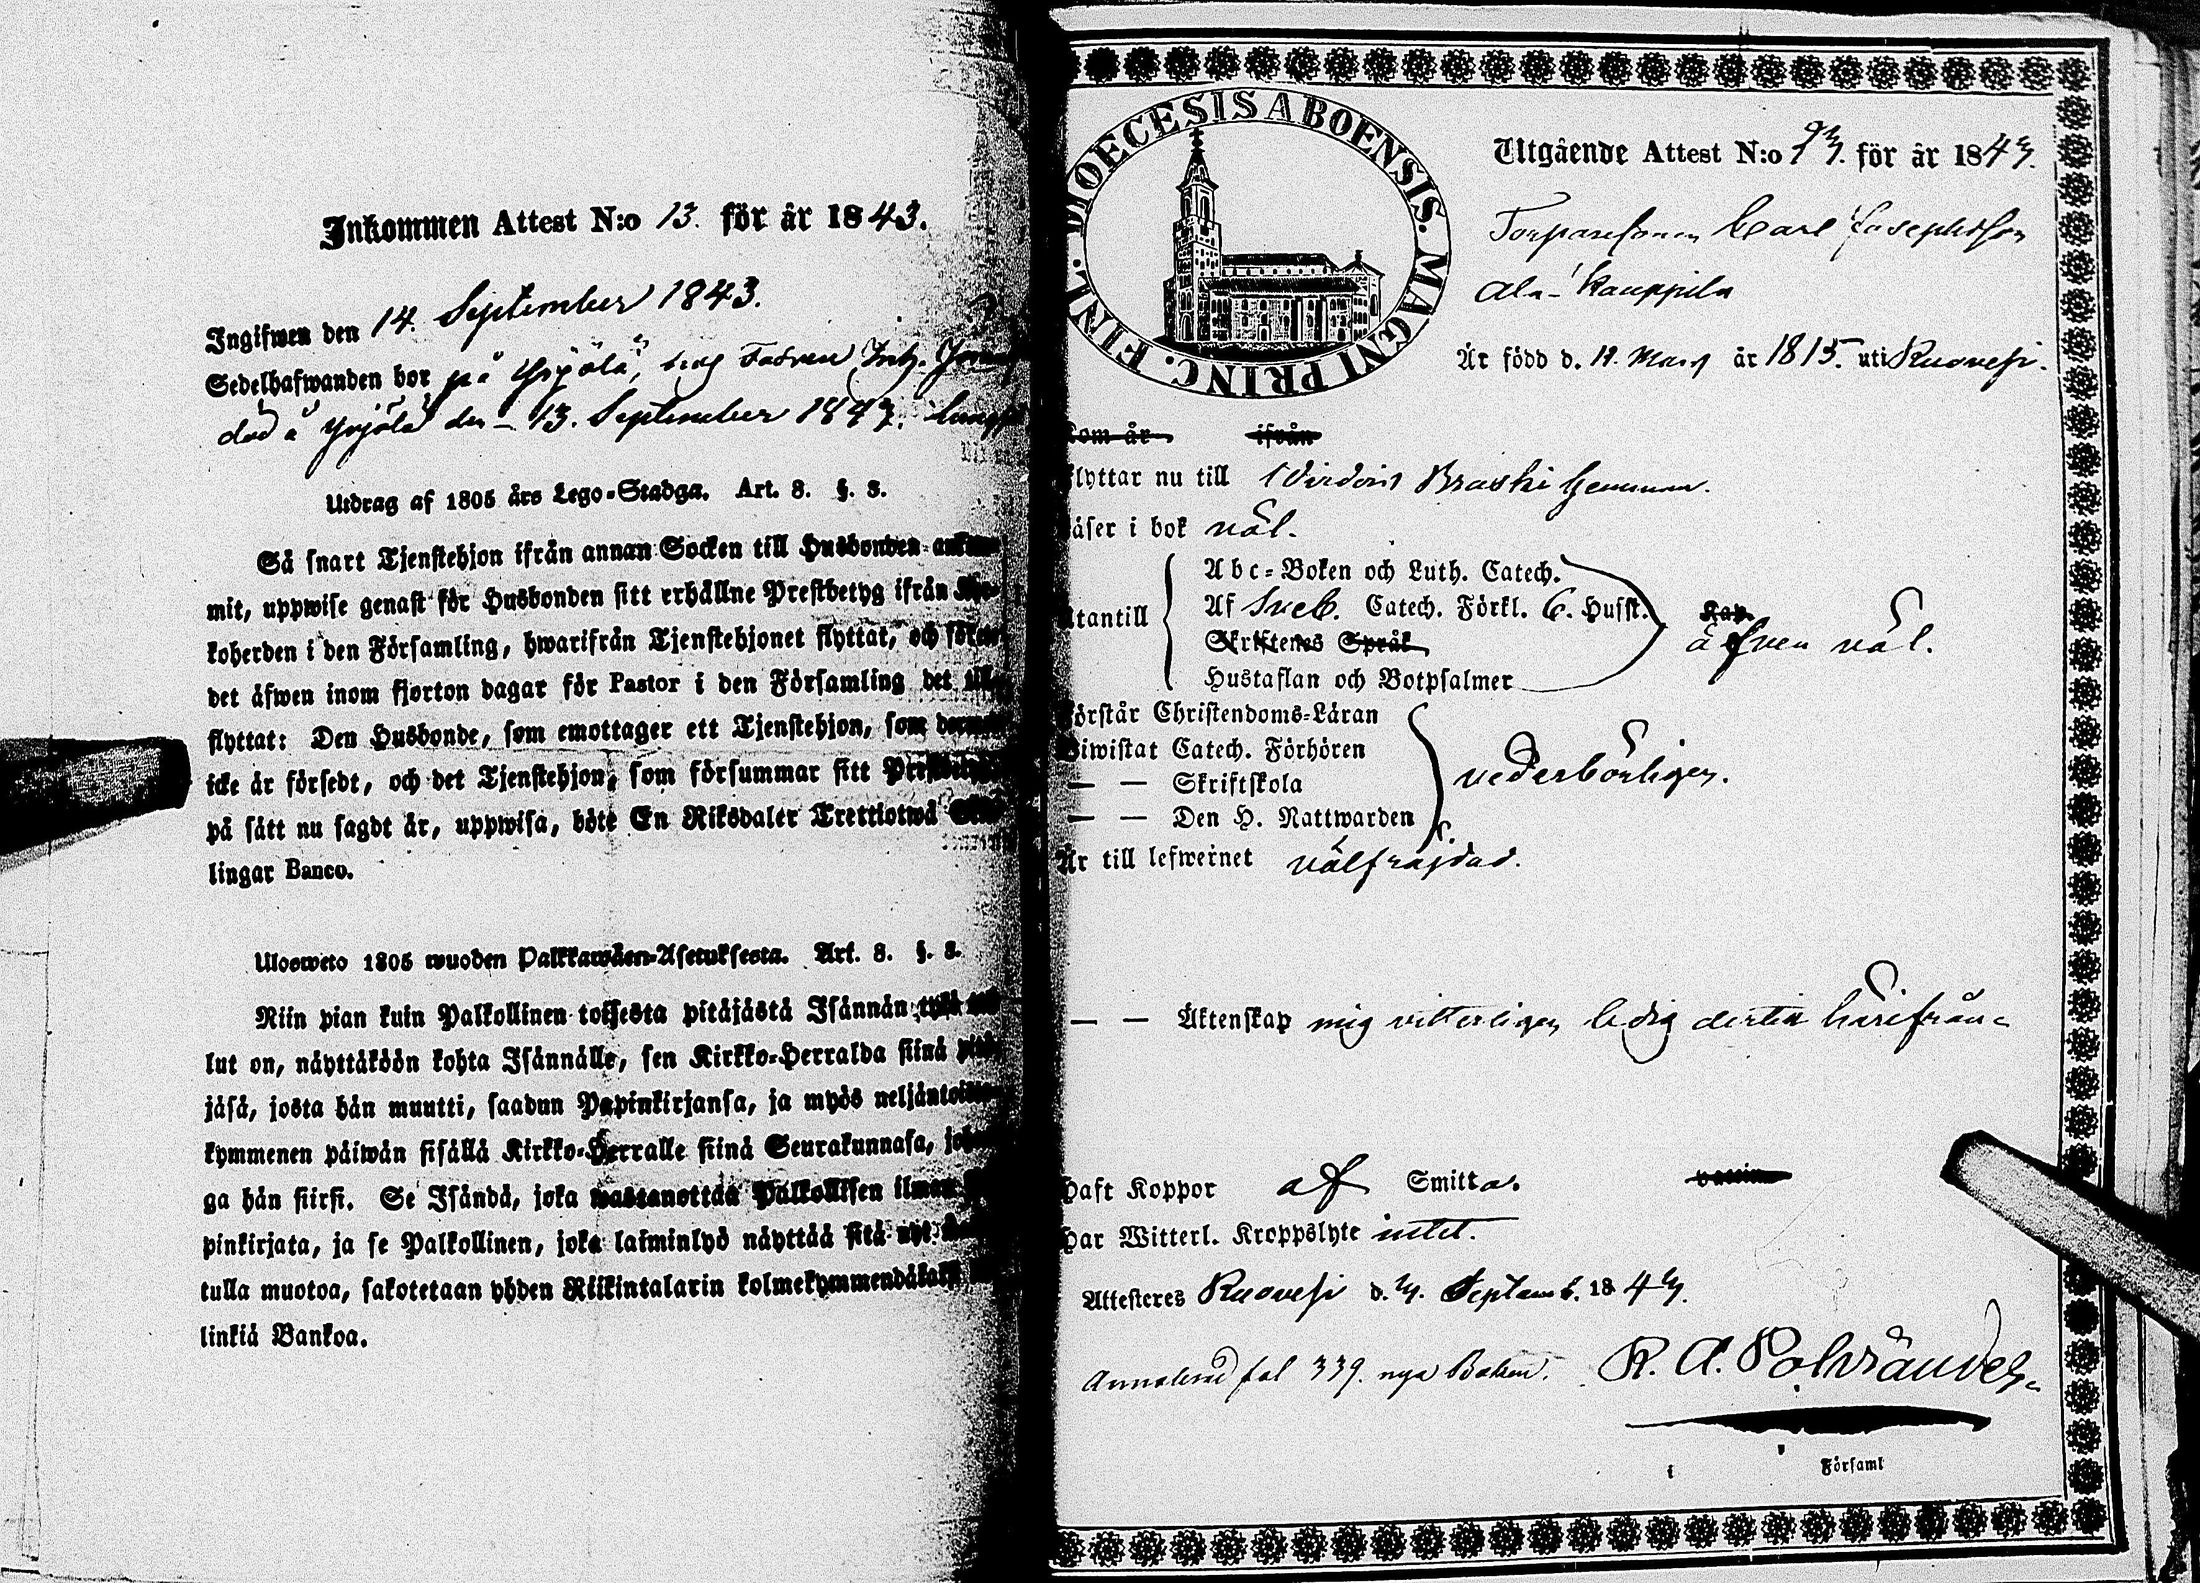 Inkommen Attest N:o 13. för år 1843.
Ingifwen den 14. September 1843.
Sedelhafwanden bor på Yrjölä, hos Fadren Inh.
död å Yrjölä den 13. September 1843.
Utdrag af 1805 års Lego-Stadga. Art. 8. §. 3.
Så snart Tjenstehjon ifrån annan Socken till Husbonden
mit, uppwise genast för Husbonden sitt erhållne Prestbetyg ifrån
koherden i den Församling, hwarifrån Tjenstehjonet flyttat, och
det äfwen inom fjorton dagar för Pastor i den Församling det
flyttat: Den Husbonde, som emottager ett Tjenstehjon, som
icke är försedt, och det Tjenstehjon, som försummar sitt
på sätt nu sagdt är, uppwisa, böte En Riksdaler Trettiotwå
lingar Banco.
Ulosweto 1805 wuoden Palkkawäen-Asetuksesta. Art. 8. §. 3.
Niin pian kuin Palkollinen toisesta pitäjästä Isännän
lut on, näyttäköön kohta Isännälle, sen Kirkko-Herralda siinä
jäsä, josta hän muutti, saadun Papinkirjansa, ja myös
kymmenen päiwän sisällä Kirkko-Herralle siinä Seurakunnasa,
ga hän siirsi. Se Isändä, joka wastanottaa Palkollisen ilman
pinkirjata, ja se Palkollinen, joka laiminlyö näyttää sitä nyt
tulla muotoa, sakotetaan yhden Riikintalarin
linkiä Bankoa.
FINL. DIOECESIS ABOENSIS. MAGNI PRINC.
Utgående Attest N:o 93. för år 1843.
Torparesonen Carl Josephsson
Ala-Kauppila
Är född d. 11. Mars år 1815. uti Ruovesi.
Kom år ifrån
Flyttar nu till Wirdois
Läser i bok väl.
Abc-Boken och Luth. Catech.
Af Sveb. Catech. Förkl. C. Husst. Kap.
Utantill äfven väl.
Skriftenes Språk
Hustaflan och Botpsalmer
Förstår Christendoms-Läran
Biwistat Catech. Förhören
— — Skriftskola vederbörligen.
— — Den H. Nattwarden
Är till lefwernet välfräjdad.
— — Äktenskap mig vitterligen ledig dertill härifrån
Haft Koppor af Smitta. vaccin
Har Witterl. Kroppslyte intet.
Attesteres Ruovesi d. Septemb. 1843.
Annoterad fol 339. nya Boken.
i Församl